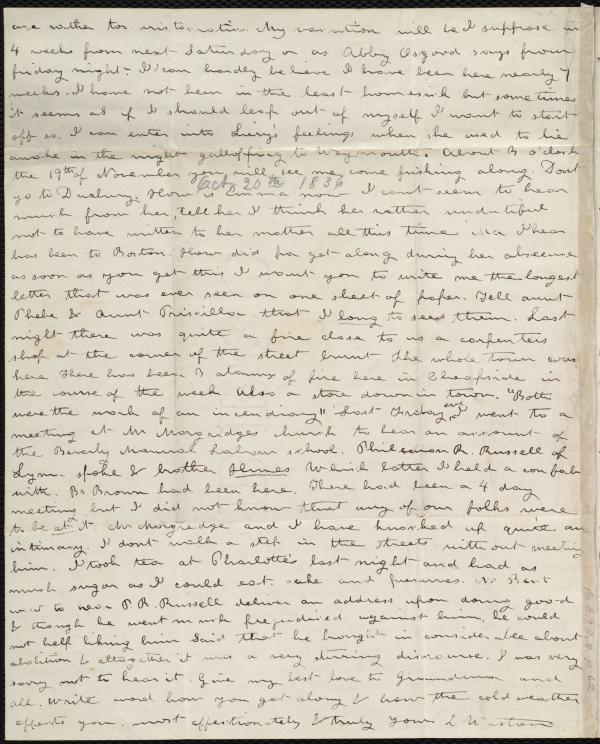 are rather too aristocratic. My vacation will be I suppose in
4 weeks from next Saturday or as Abby Osgood says from
friday night. I can hardly believe I have been here nearly 7
weeks. I have not been in the least homesick but sometimes
it seems as if I should leap out of myself I want to start
off so. I can enter into Lucy's feelings when she used to lie
awake in the night galloffing to Weymouth. About 3 o'clock
the 19th of November you will see me come frisking along. Dont
Oct 20th 1836
go to Duxbury. How is Emma now I cant seem to hear
much from her, tell her I think her rather undutiful
not to have written to her mother all this time Ma I hear
has been to Boston. How did pa get along during her abscence
as soon as you get this I want you to write me the longest
letter that was ever seen on one sheet of paper. Tell aunt
Phebe & Aunt Priscilla that I long to see them. Last
night there was quite a fire close to us a carpenters
shop at the corner of the street burnt. The whole town was
here. There has been 3 alarms of fire here in
the course of the week. Also a store down in town. "Both
were the work of an incendiary" Last Friday eve I went to a
meeting at Mr Morgridges church to hear an account of
the Beverly Manual Labour school. Philemon R. Russell of
Lynn spoke & brother Himes Which latter I held a confab
with. Br Brown had been here. There had been a 4 day
meeting but I did not know that any of our folks were
to be at it. Mr Morgredge and I have knocked up quite an
intimacy. I dont walk a step in the streets without meeting
him. I took tea at Charlotte's last night and had as
much sugar as I could eat. cake and preserves. Mr Bent
went to hear P. R. Russell deliver an address upon doing good
& though he went much prejudiced against him, he could
not help liking him Said that he brought in considerable about
abolition & altogether it was a very stirring discourse. I was very
sorry not to hear it. Give my best love to Grandma and
all. Write word how you get along & how the cold weather
affects you. most affectionately & truly yours L Weston